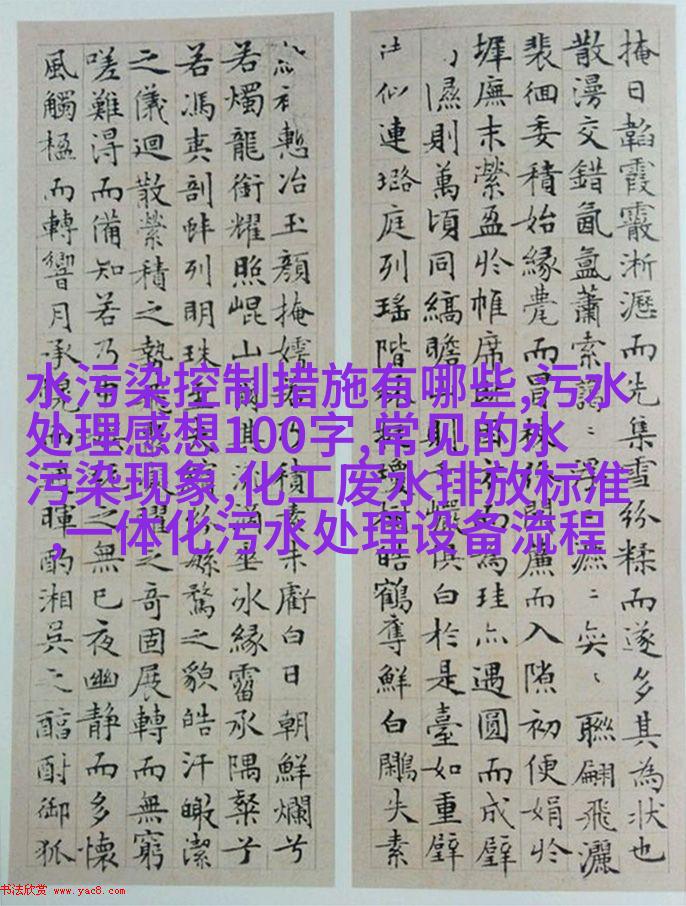 掩日韜霞霰淅瀝而先集雪紛糅而遂多其為狀也
散漫交錯氤氳蕭索藹〻浮〻瀌〻奕〻聯翩飛灑
裴徊委積始緣甍而冒開簾而入隙初便娟於
墀廡末縈盈於帷席而為珪亦遇圓而成璧
隰則萬頃同縞瞻則巖俱白於是臺如重璧
似連璐庭列瑤階瓊樹皓鶴奪鮮白鷴失素
慙冶玉顏掩嫮若乃積素未虧白日朝鮮爛兮
若燭龍銜耀照崐山爾其流滴垂冰緣霤承隅粲兮
若馮夷剖蚌列明珠至夫之貌皓汗皦潔
之儀迴散縈積之勢飛曜之奇固展轉而無窮
嗟難得而備知若乃之無已夜幽静而多懷
風觸楹而轉響月承幌而暉酌湘吳之醇酎御狐
水污染控制措施有哪些,污水
处理感想100字,常见的水
污染现象,化工废水排放标准
,一体化污水处理设备流程
书法欣赏 www.yac8.com